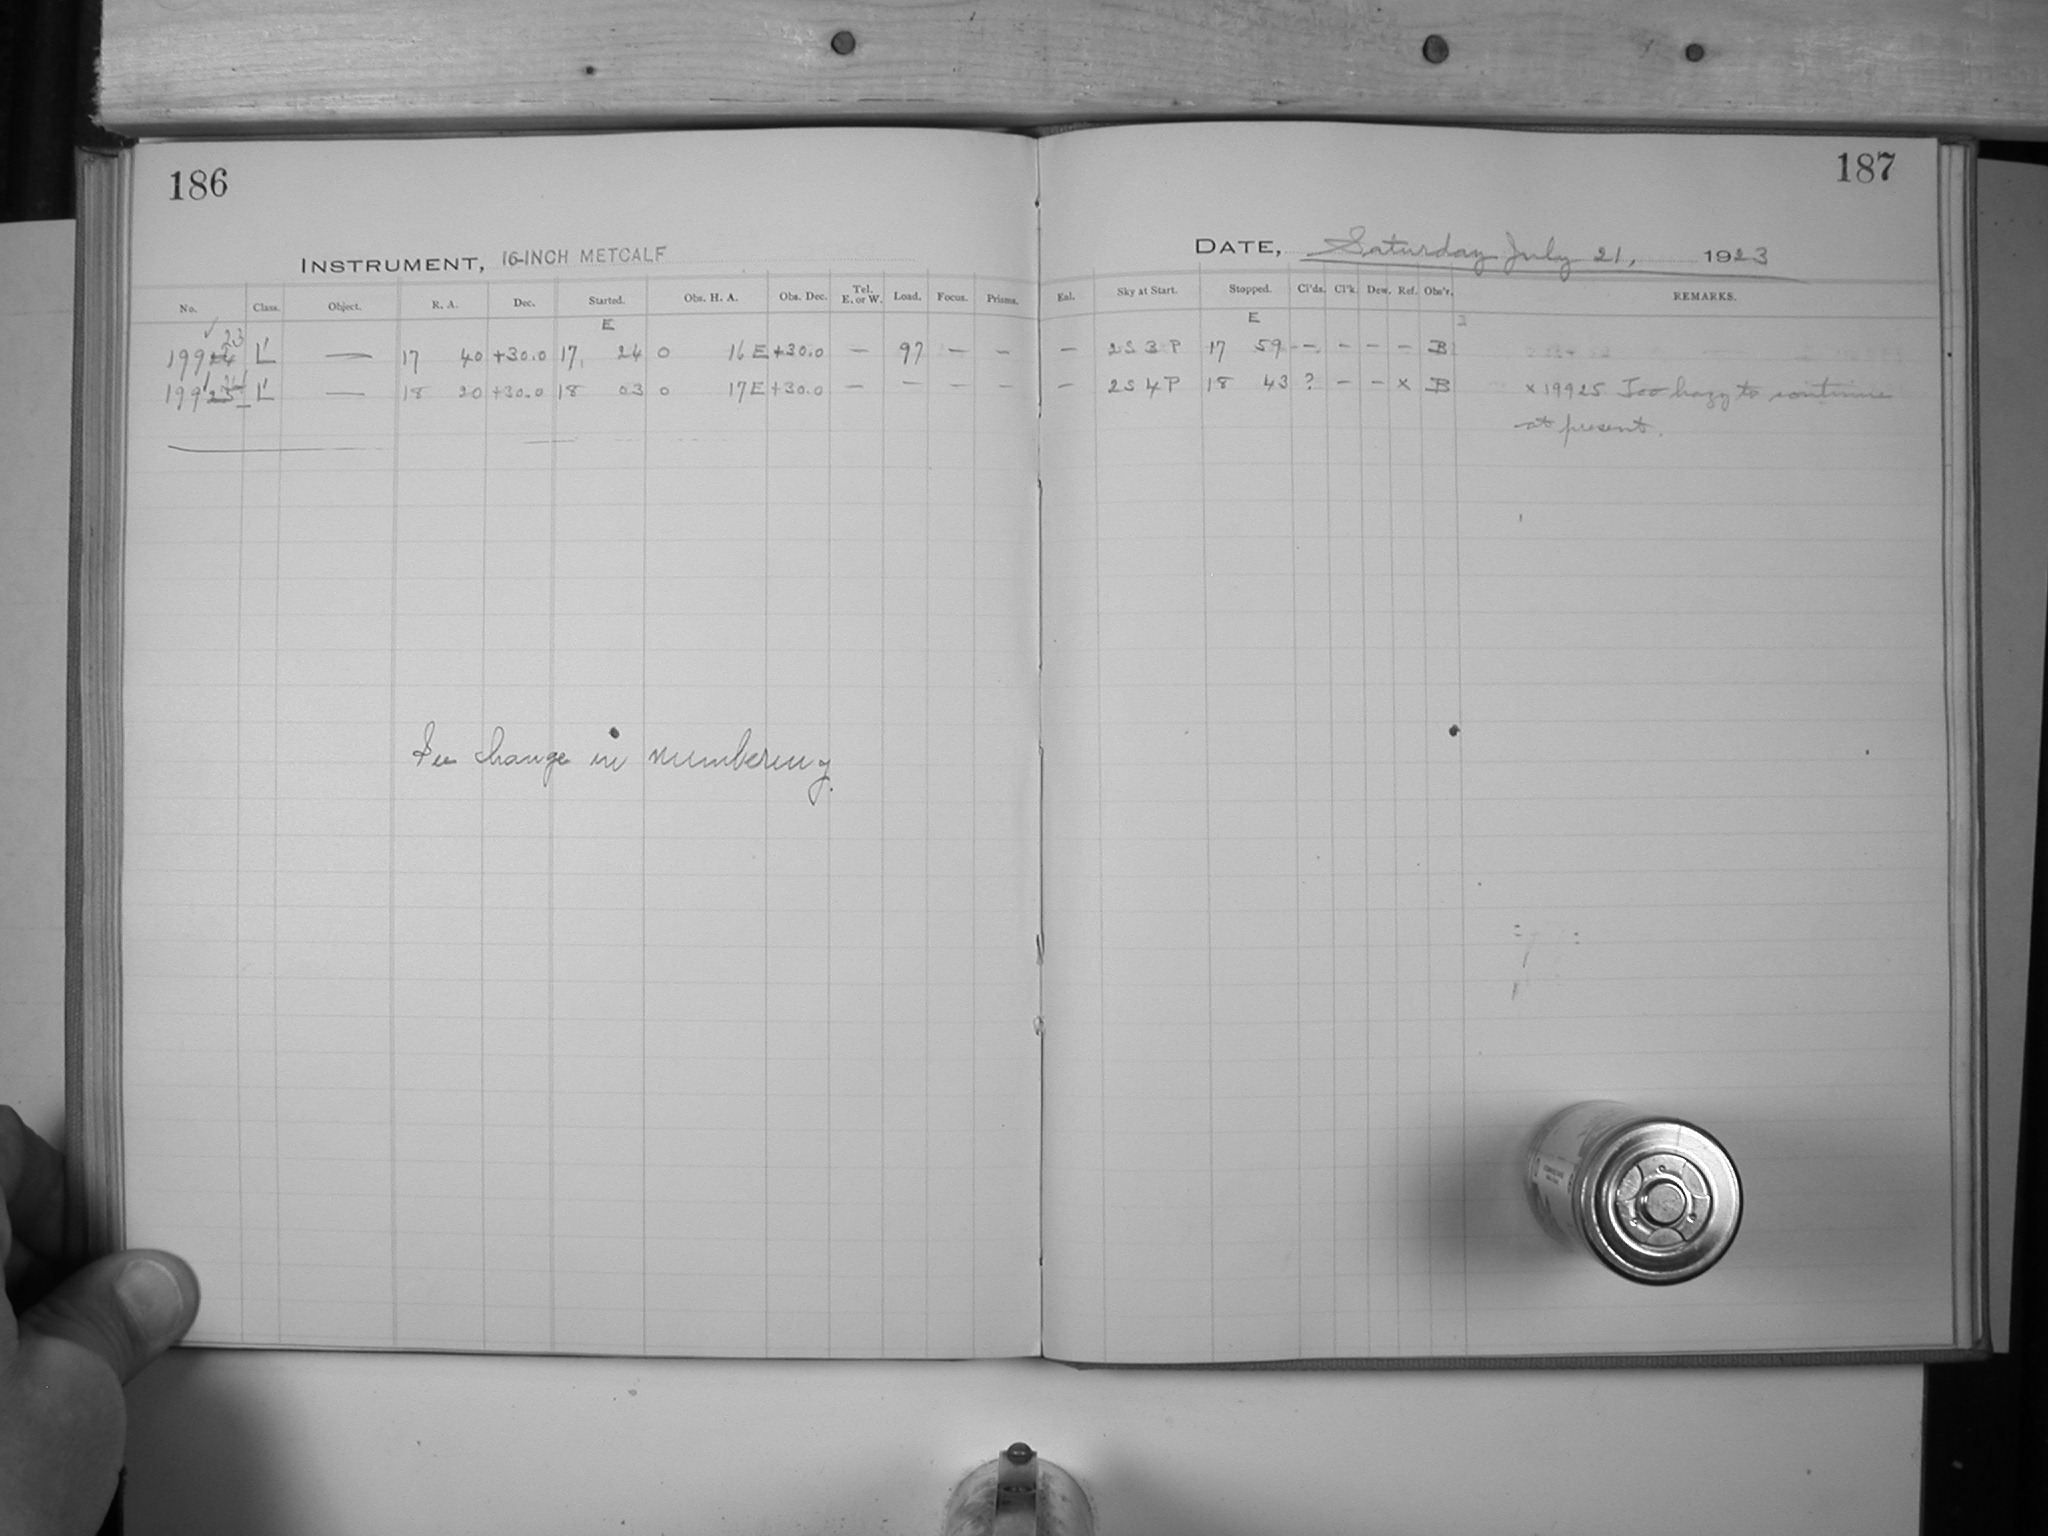 186
INSTRUMENT, 16-INCH METCALF
No. Class. Object. R. A. Dec. Started. Obs. H. A. Obs. Dec. Tel. E. or W. Load. Focus. Prisms.
E
23
19924 L' — 17 40 +30.0 17 24 0 16 E +30.0 — 97 — —
24
19925 L' — 18 20 +30.0 18 03 0 17 E +30.0 — — — —
See change in numbering.
187
DATE, Saturday July 21, 1923
Eal. Sky at Start. Stopped. Cl'ds. Cl'k. Dew. Ref. Obs'r. REMARKS.
E
— 2 S 3 P 17 59 — — — — B
— 2 S 4 P 18 43 ? — — x B x 19925 Too hazy to continue
at present.